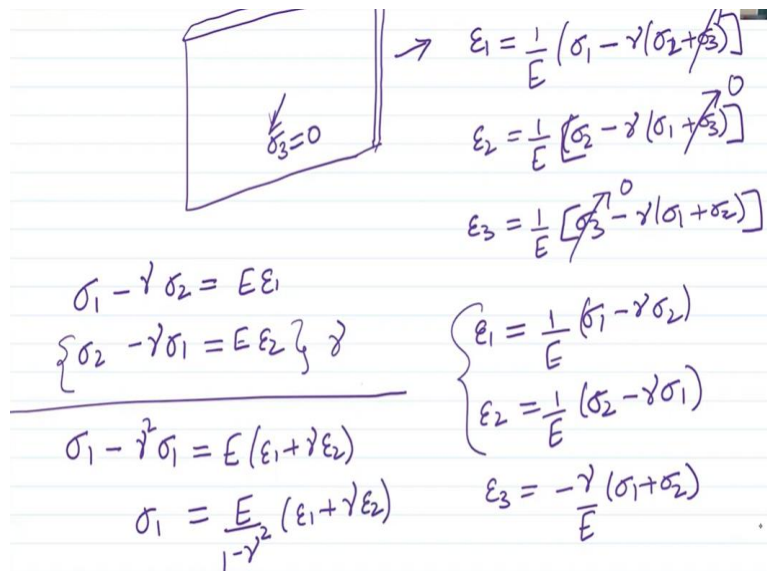 ε₁ = 1/E (σ₁ − γ(σ₂+σ₃)]
σ₃=0
0
ε₂ = 1/E [σ₂ − γ(σ₁+σ₃)]
0
ε₃ = 1/E [σ₃ − γ(σ₁+σ₂)]
σ₁ − γσ₂ = Eε₁
{σ₂ − γσ₁ = Eε₂} γ
σ₁ − γ²σ₁ = E(ε₁+γε₂)
σ₁ = E/1−γ² (ε₁+γε₂)
{ε₁ = 1/E (σ₁−γσ₂)
ε₂ = 1/E (σ₂−γσ₁)
ε₃ = −γ/E (σ₁+σ₂)